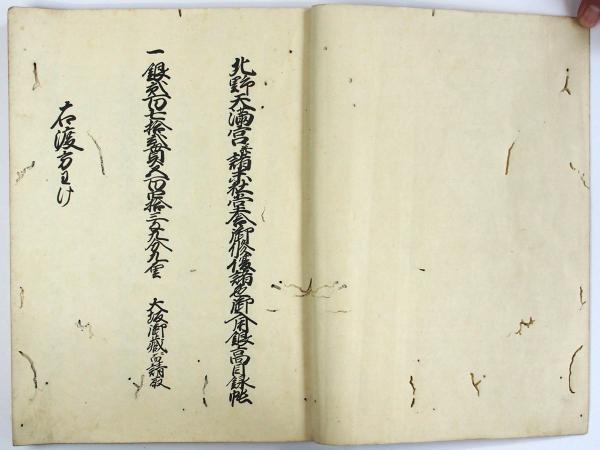 北野天満宮并諸末社堂舎御修復諸色御入用銀高目録帳
一銀弐百七拾弐貫九百四拾三匁九分九厘 大坂御蔵ゟ請取
右渡方わけ